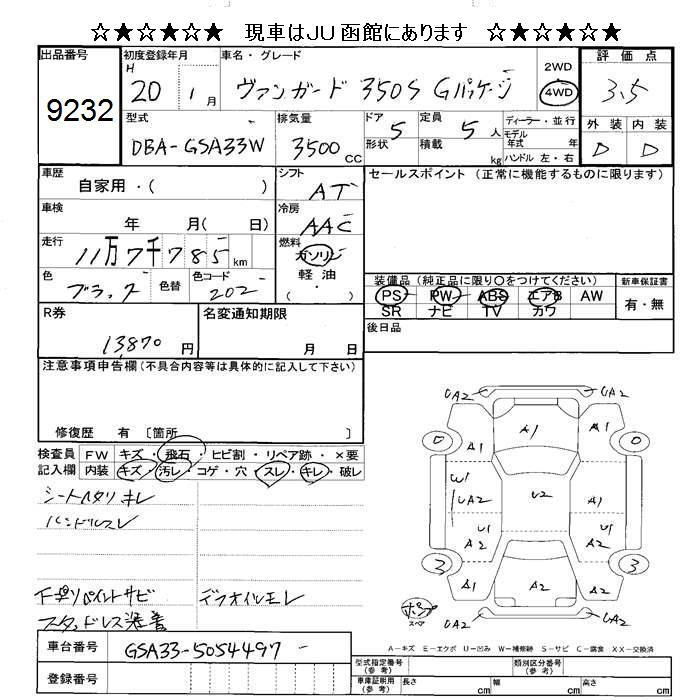 ☆★☆★☆★ 現車はJU函館にあります ☆★☆★☆★
出品番号 9232
初度登録年月 H 20 年 1 月
車名・グレード ヴァンガード 350S Gパッケージ
2WD 4WD
評価点 3.5
外装 内装
D D
型式 DBA-GSA33W
排気量 3500 CC
ドア 形状 5
定員 5 人
積載 kg
ディーラー・並行
モデル年式 年
ハンドル 左・右
車歴 自家用・( )
シフト AT
セールスポイント (正常に機能するものに限ります)
車検 年 月( 日)
冷房 AAC
走行 11万7千785 km
燃料 ガソリン 軽油 ・( )
色 ブラック 色替
色コード 202
装備品 (純正品に限り○をつけてください)
PS PW ABS エアB AW
SR ナビ TV カワ
新車保証書 有・無
R券 13,870 円
名変通知期限 月 日
後日品
注意事項申告欄 (不具合内容等は具体的に記入して下さい)
修復歴 有 〔箇所 〕
検査員記入欄
FW キズ・飛石・ヒビ割・リペア跡・×要
内装 キズ・汚レ・コゲ・穴・スレ・キレ・破レ
シートヘタリ キレ
ハンドルスレ
下廻りペイントサビ デフオイルモレ
スタッドレス装着
UA2 UA2
A1 A1 A1
W1 UA2 U2 A1
U1 A2 U1 A2
3 3
A1 A2 A2
UA2 UA2
スペア
A-キズ E-エクボ U-凹み W-補修跡 S-サビ C-腐食 XX-交換済
車台番号 GSA33-5054497
登録番号
型式指定番号 (参考) 類別区分番号 (参考)
車庫証明用 (参考) 長さ cm 幅 cm 高さ cm